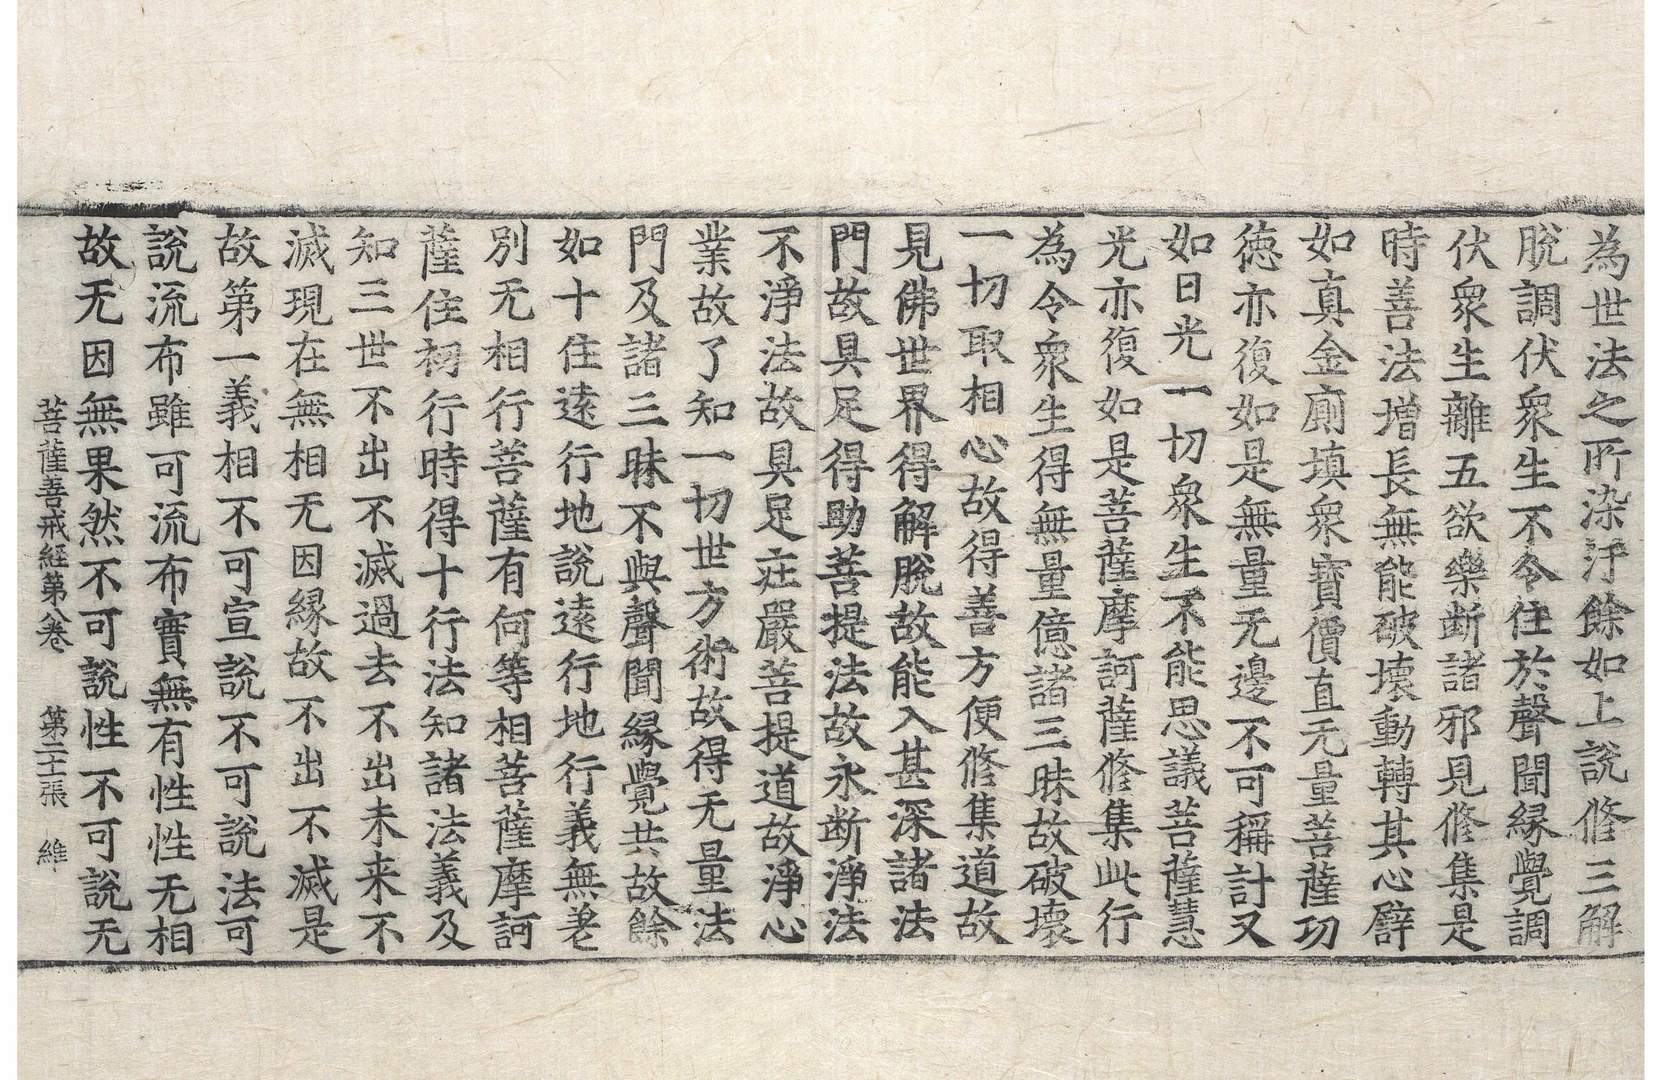 為世法之所染汙餘如上說修三解
脫調伏衆生不令住於聲聞縁覺調
伏衆生離五欲樂断諸邪見修集是
時善法增長無能破壞動轉其心譬
如真金廁填衆寶價直无量菩薩功
徳亦復如是無量无邊不可稱計又
如日光一切衆生不能思議菩薩慧
光亦復如是菩薩摩訶薩修集此行
為令衆生得無量億諸三昧故破壞
一切取相心故得善方便修集道故
見佛世界得解脫故能入甚深諸法
門故具足得助菩提法故永断淨法
不淨法故具足莊嚴菩提道故淨心
業故了知一切世方術故得无量法
門及諸三昧不與聲聞縁覺共故餘
如十住遠行地說遠行地行義無差
別无相行菩薩有何等相菩薩摩訶
薩住初行時得十行法知諸法義及
知三世不出不滅過去不出未来不
滅現在無相无因縁故不出不滅是
故第一義相不可宣說不可說法可
說流布雖可流布實無有性性无相
故无因無果然不可說性不可說无
菩薩善戒経第八卷 第二十張 維